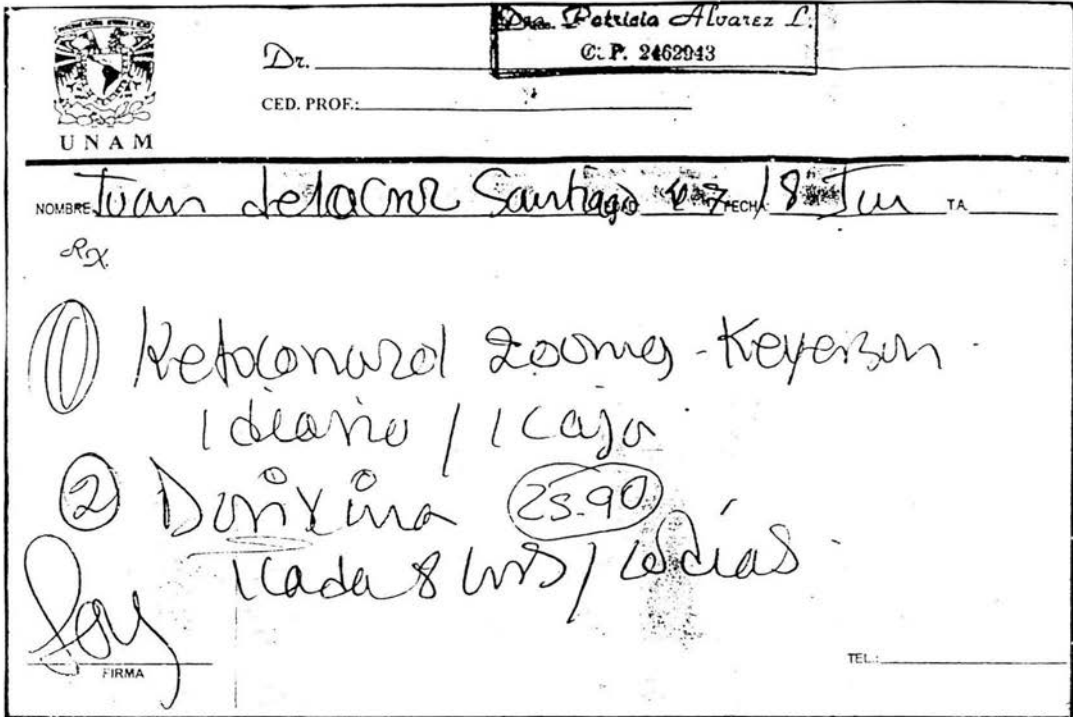 Dra. Patricia Alvarez L.
C. P. 2462943
Dr.
CED. PROF.:
UNAM
NOMBRE Juan delaCruz Santiago EDAD FECHA 18 Jun TA.
Rx.
① Ketoconazol 200mg - Keyerzon
1 diario / 1 caja
② Donixina 25.90
1 cada 8 hrs / días
FIRMA
TEL.: